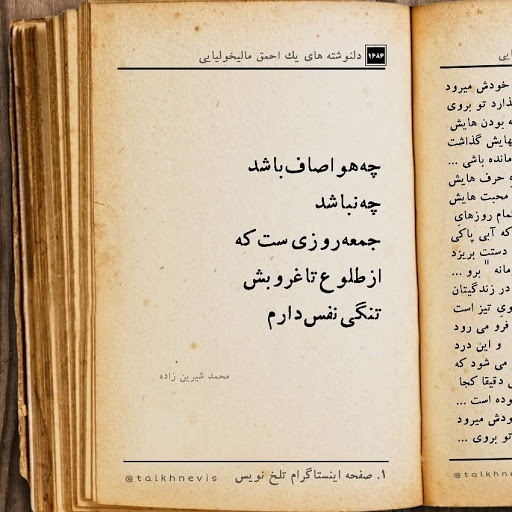 دلنوشته های یك احمق مالیخولیایی ۹۶۸۶
چه هوا صاف باشد
چه نباشد
جمعه روزی ست که
از طلوع تا غروبش
تنگی نفس دارم
محمد شیرین زاده
۱. صفحه اینستاگرام تلخ نویس @talkhnevis
خودش میرود
تو بروی
بودن هایش
گذاشت
مانده باشی ...
حرف هایش
محبت هایش
روزهای
که آبی پاکی
دستت بریزد
" برو ...
در زندگیتان
تیز است
فرو می رود
و این درد
می شود که
دقیقا کجا
است ...
میرود
تو بروی ...
@talkhne